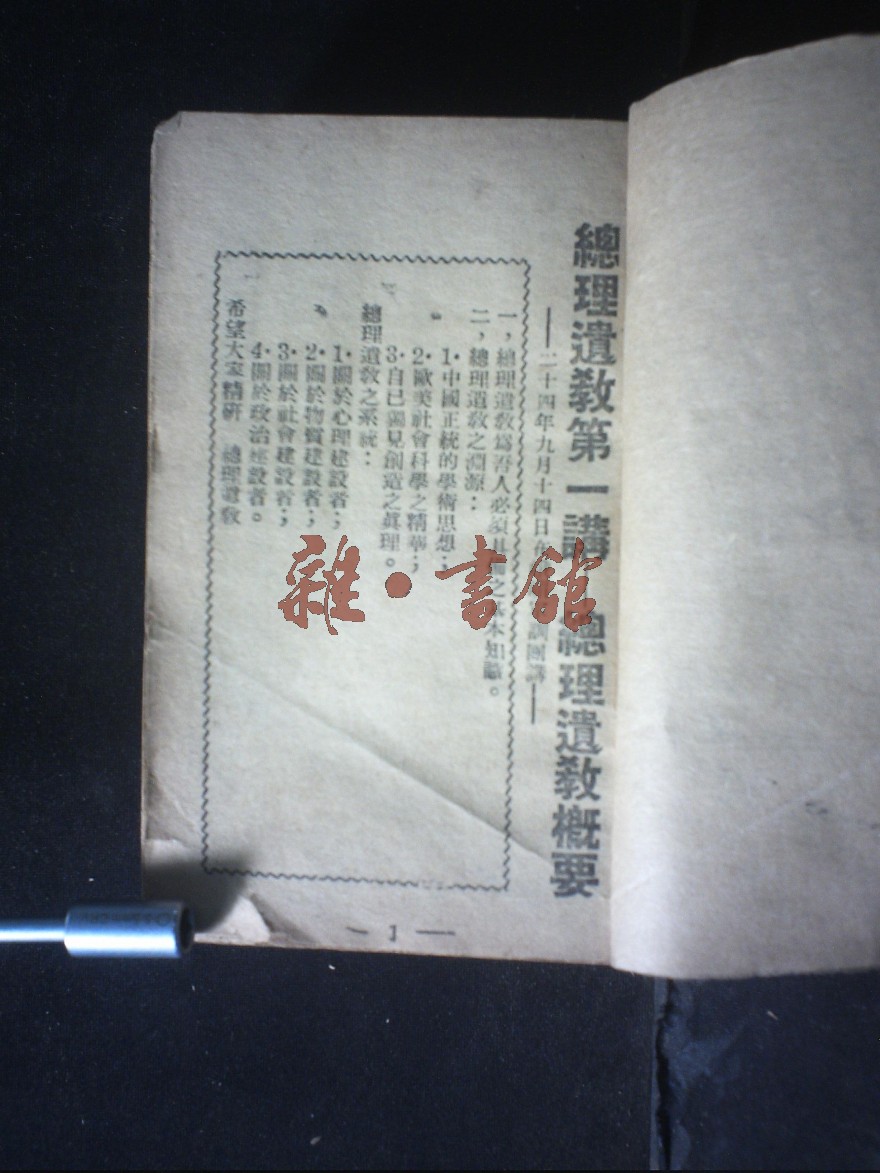 總理遺教第一講 總理遺教概要
——二十四年九月十四日在 訓團講——
一，總理遺教為吾人必須具備之基本知識。
二，總理遺教之淵源：
1.中國正統的學術思想；
2.歐美社會科學之精華；
3.自己獨見創造之眞理。
總理遺教之系統：
1.關於心理建設者；
2.關於物質建設者；
3.關於社會建設者；
4.關於政治建設者。
希望大家精研 總理遺教
— 1 —
雜·書館